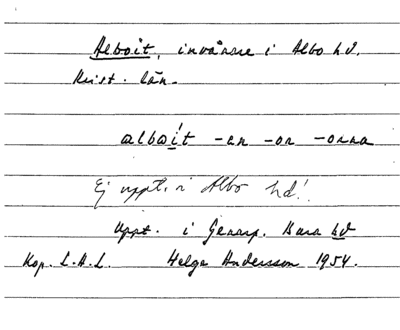 Alboit, invånare i Albo hd.
Krist. län.
alboít -en -or -orna
Ej uppt. i Albo hd!
Uppt. i Genarp. Bara hd
Kop. L.A.L. Helge Andersson 1954.